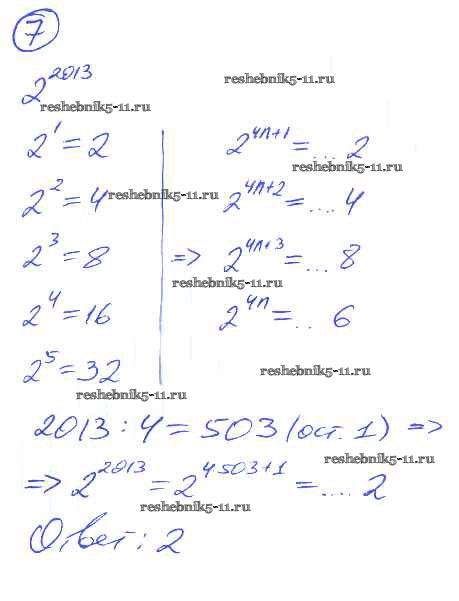 7
2^2013
reshebnik5-11.ru
reshebnik5-11.ru
2^1 = 2
2^(4n+1) = ... 2
reshebnik5-11.ru
2^2 = 4
reshebnik5-11.ru
2^(4n+2) = .... 4
2^3 = 8
=> 2^(4n+3) = ... 8
reshebnik5-11.ru
2^4 = 16
2^(4n) = .. 6
2^5 = 32
reshebnik5-11.ru
reshebnik5-11.ru
2013 : 4 = 503 (ост. 1) =>
reshebnik5-11.ru
=> 2^2013 = 2^(4·503+1) = .... 2
reshebnik5-11.ru
Ответ: 2